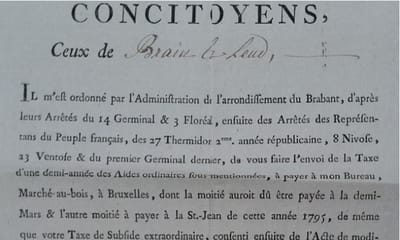 CONCITOYENS,
Ceux de Brain le Leud,
IL m'est ordonné par l'Administration de l'arrondissement du Brabant, d'après
leurs Arrêtés du 14 Germinal & 3 Floréal, ensuite des Arrêtés des Représen-
tans du Peuple français, des 27 Thermidor 2me. année républicaine, 8 Nivose,
23 Ventose & du premier Germinal dernier, de vous faire l'envoi de la Taxe
d'une demi-année des Aides ordinaires sous-mentionnées, à payer à mon Bureau,
Marché-au-bois, à Bruxelles, dont la moitié auroit dû être payée à la demi-
Mars & l'autre moitié à payer à la St.-Jean de cette année 1795, de même
que votre Taxe de Subside extraordinaire, consenti ensuite de l'Acte de modi-